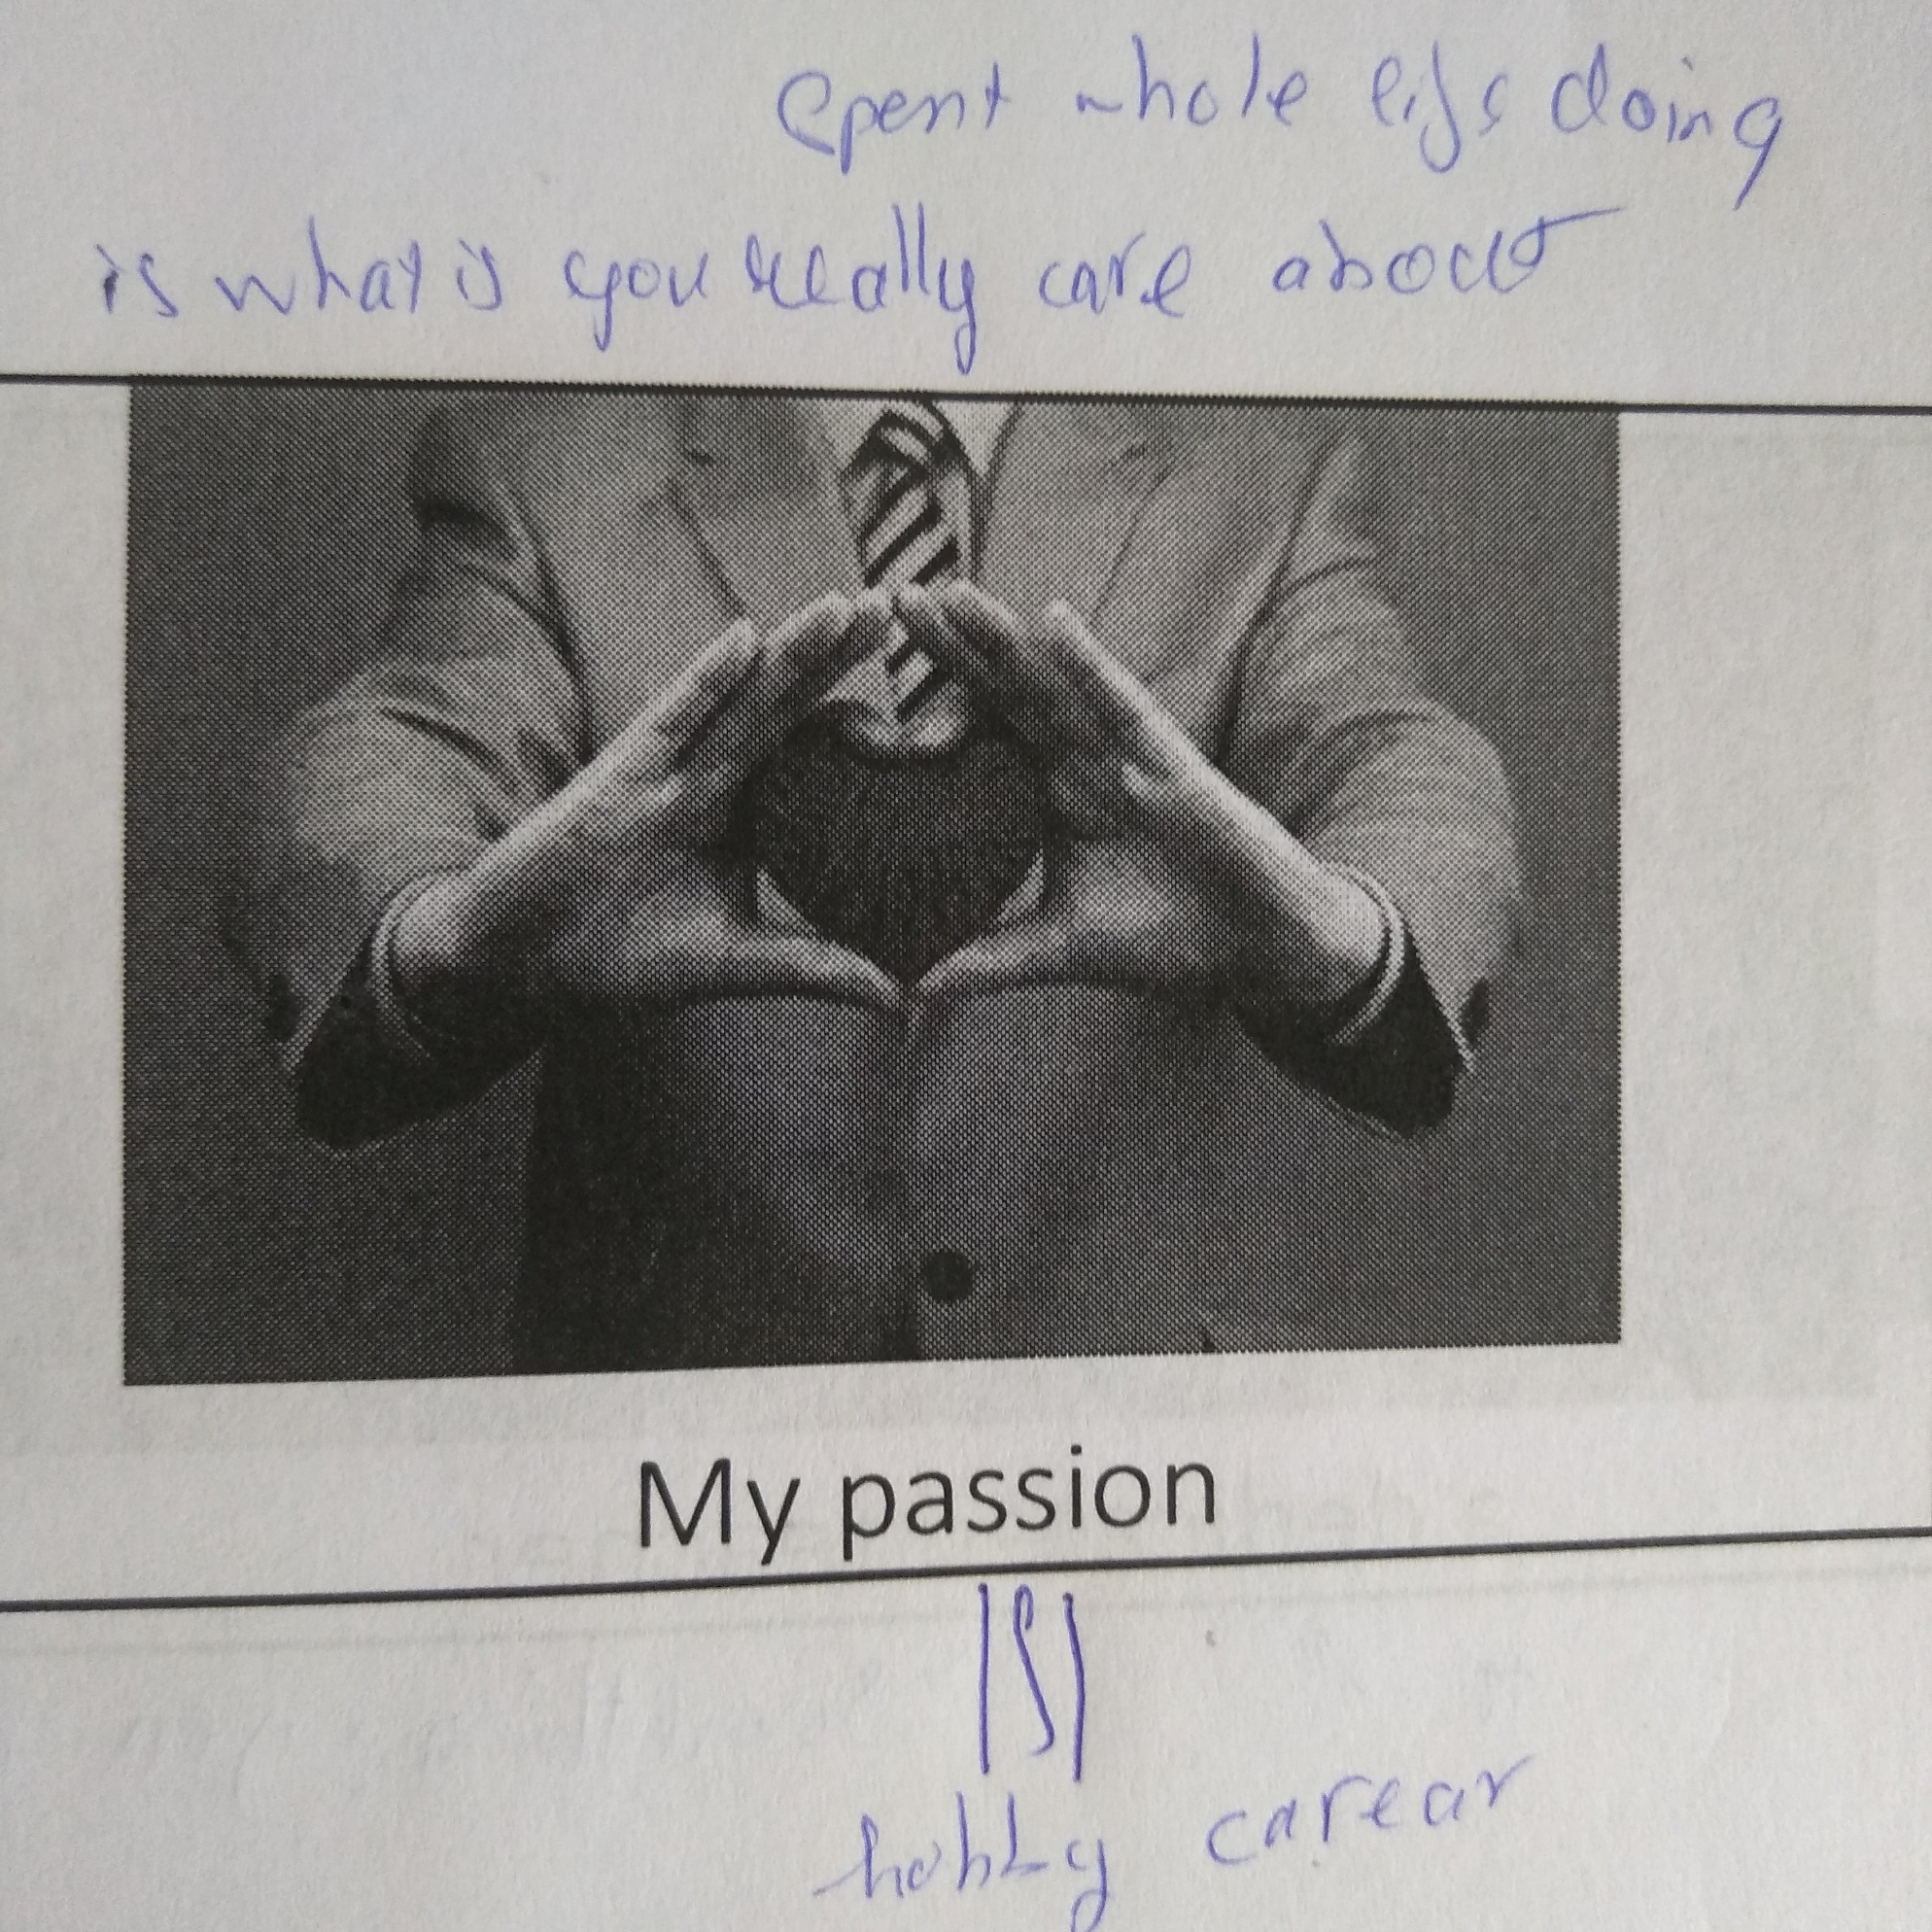 spent whole life doing
is what is you really care about
My passion
hobby carear